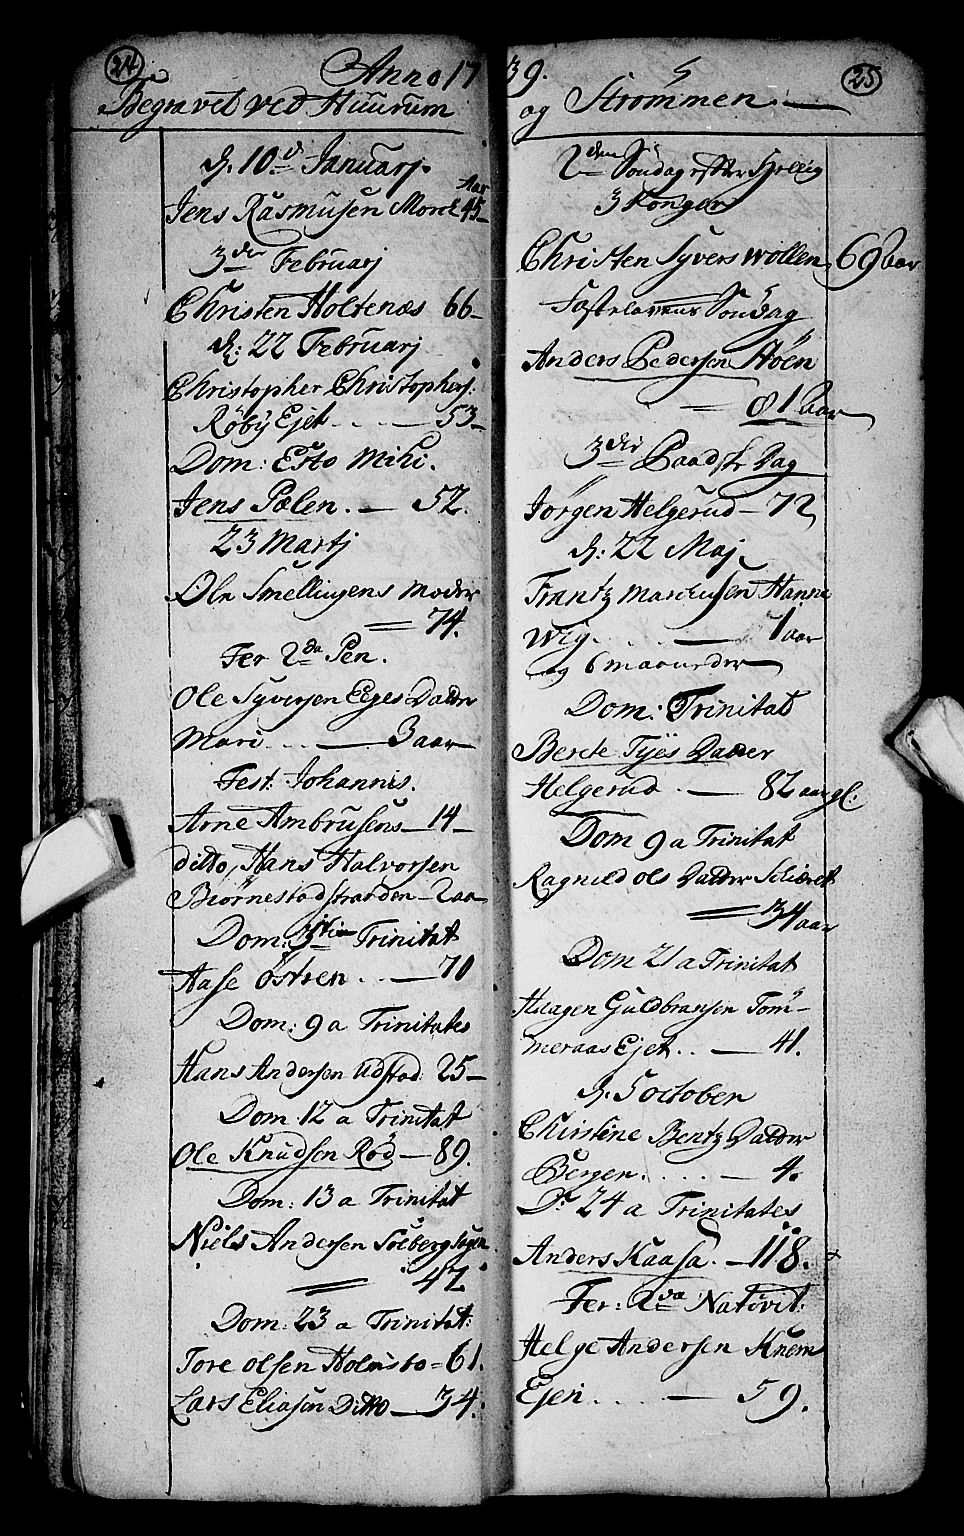 24
Anno 17
Begravet ved Huurum
d. 10d Januarj.
Aar
Jens Rasmusen Morck 45
3die Februarj
Christen Holtenæs 66
d: 22 Februarj
Christopher Christophers:
Røby Ejet 53
Dom: Esto Mihi.
Jens Pælen. 52.
23 Martj
Ole Smellingens Moder
74.
Fer 2da Pen.
Ole Syversen Eges Datter
Mari 3 aar
Fest: Johannis.
Arne Ambrusens 14
ditto, Hans Halvorsen
Biørnestadstranden 2 aar
Dom: 3tia Trinitat
Aase Østren 70
Dom: 9 a Trinitates
Hans Andersen Udstad 25
Dom: 12 a Trinitat
Ole Knudsen Rød 89.
Dom: 13 a Trinitat
Niels Andersen Solberg
42
Dom: 23 a Trinitat:
Tore Olsen Holmsbo 61.
Lars Eliasen Ditto 34.
39.
25
og Strømmen.
2den Søndag efter Hellig
3 Konger
Christen Syvers Wollen 69 aar
Fastelavens Søndag
Anders Pedersen Høen
81 aar
3die Paaske Dag
Jørgen Helgerud 72
d: 22 Maj.
Frantz Marcusen Hanne
Wig. 1 aar
og 6 maaneder
Dom. Trinitat
Berete Tyes Datter
Helgerud. 82 aar gl.
Dom 9 a Trinitat
Ragnild Ols Datter Schieret
34 aar
Dom 21 a Trinitat
Haagen Guldbransen Tøm-
meraas Ejet. 41.
d. 5 October
Christine Bentz Datter
Bergen. 4.
D: 24 a Trinitates
Anders Kaasa. 118.
Fer: 2da Nativit:
Helge Andersen Knem
Ejeri 59.